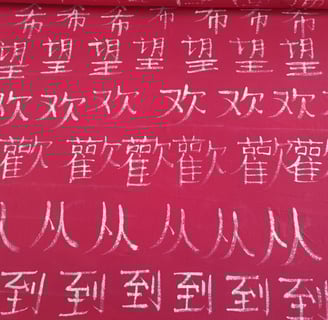 希希希希希希希
望望望望望望望
欢欢欢欢欢欢
歡歡歡歡歡歡
从从从从从
到到到到到到